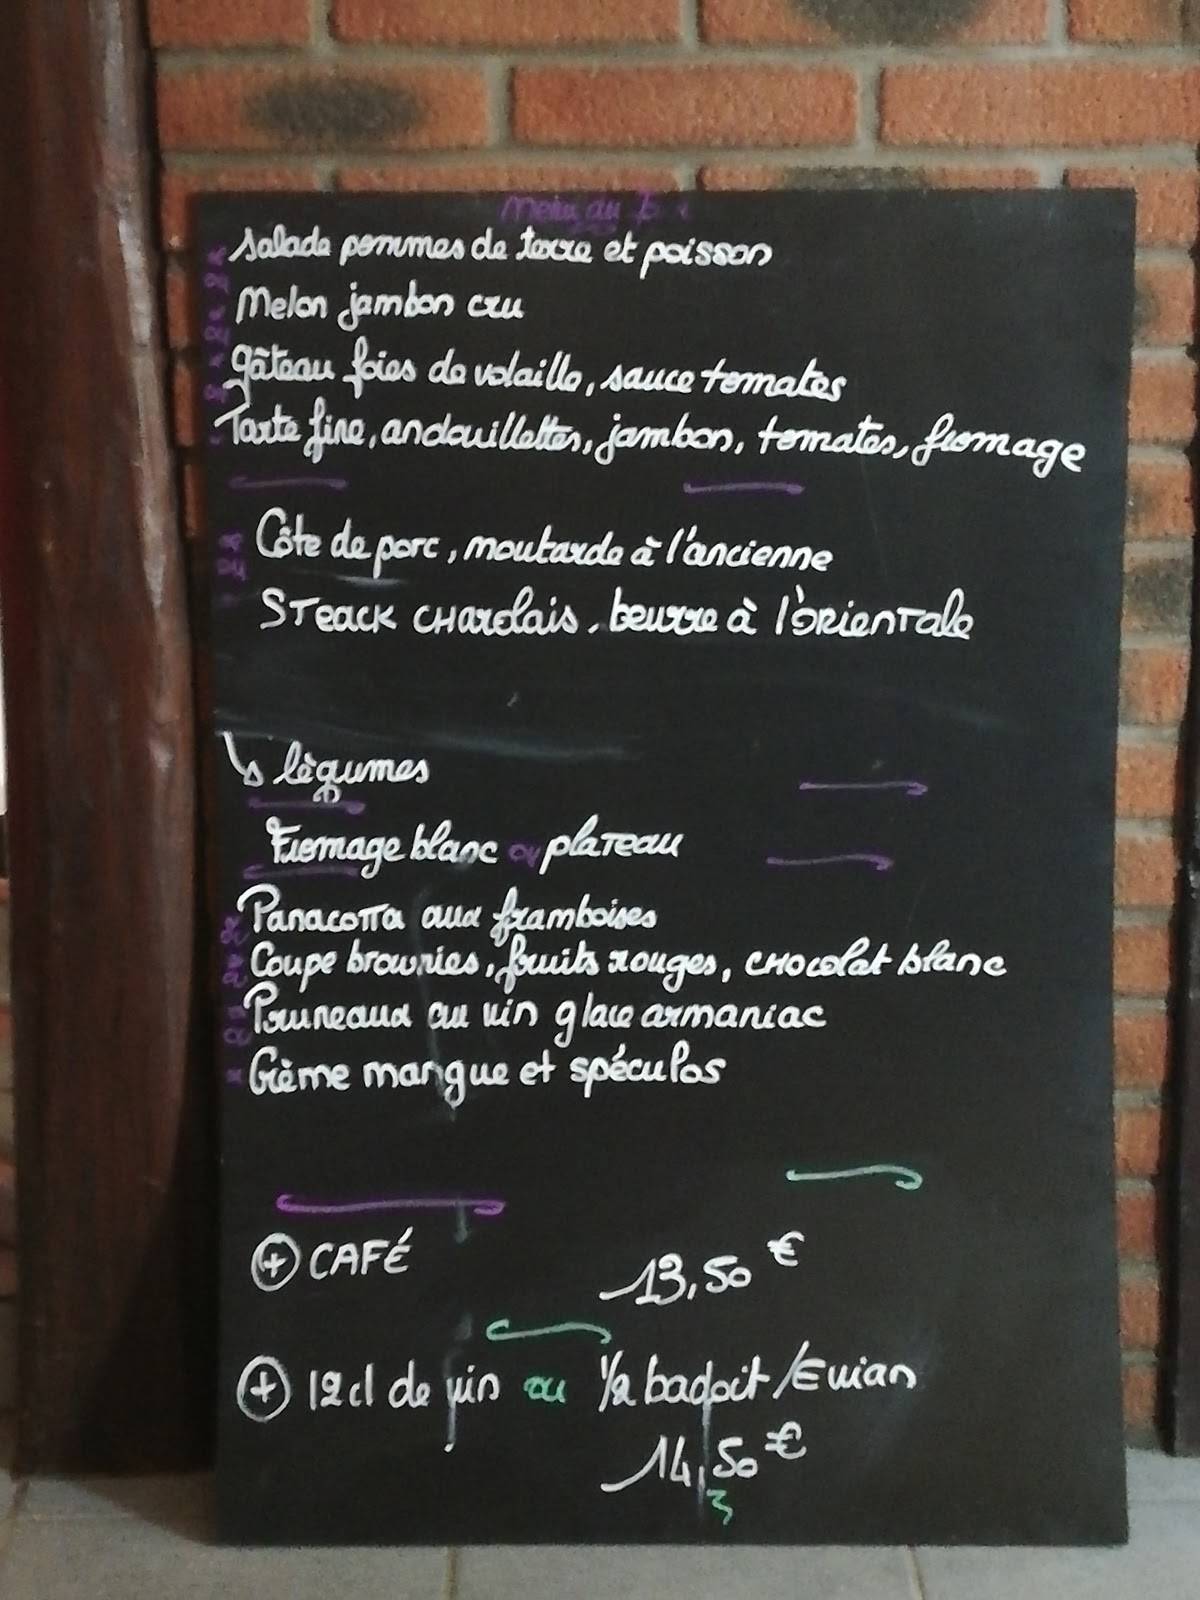 Menu du
Salade pommes de terre et poisson
Melon jambon cru
gâteau foies de volaille, sauce tomates
Tarte fine, andouillettes, jambon, tomates, fromage
Côte de porc, moutarde à l'ancienne
STEACK CHAROLAIS, beurre à l'ORIENTALE
légumes
Fromage blanc ou plateau
Panacotta aux framboises
Coupe brownies, fruits rouges, CHOCOLAT blanc
Pruneaux au vin glace armaniac
Crème mangue et spéculos
+ CAFÉ
13,50 €
+ 12cl de vin ou 1/2 badoit / Evian
14,50 €